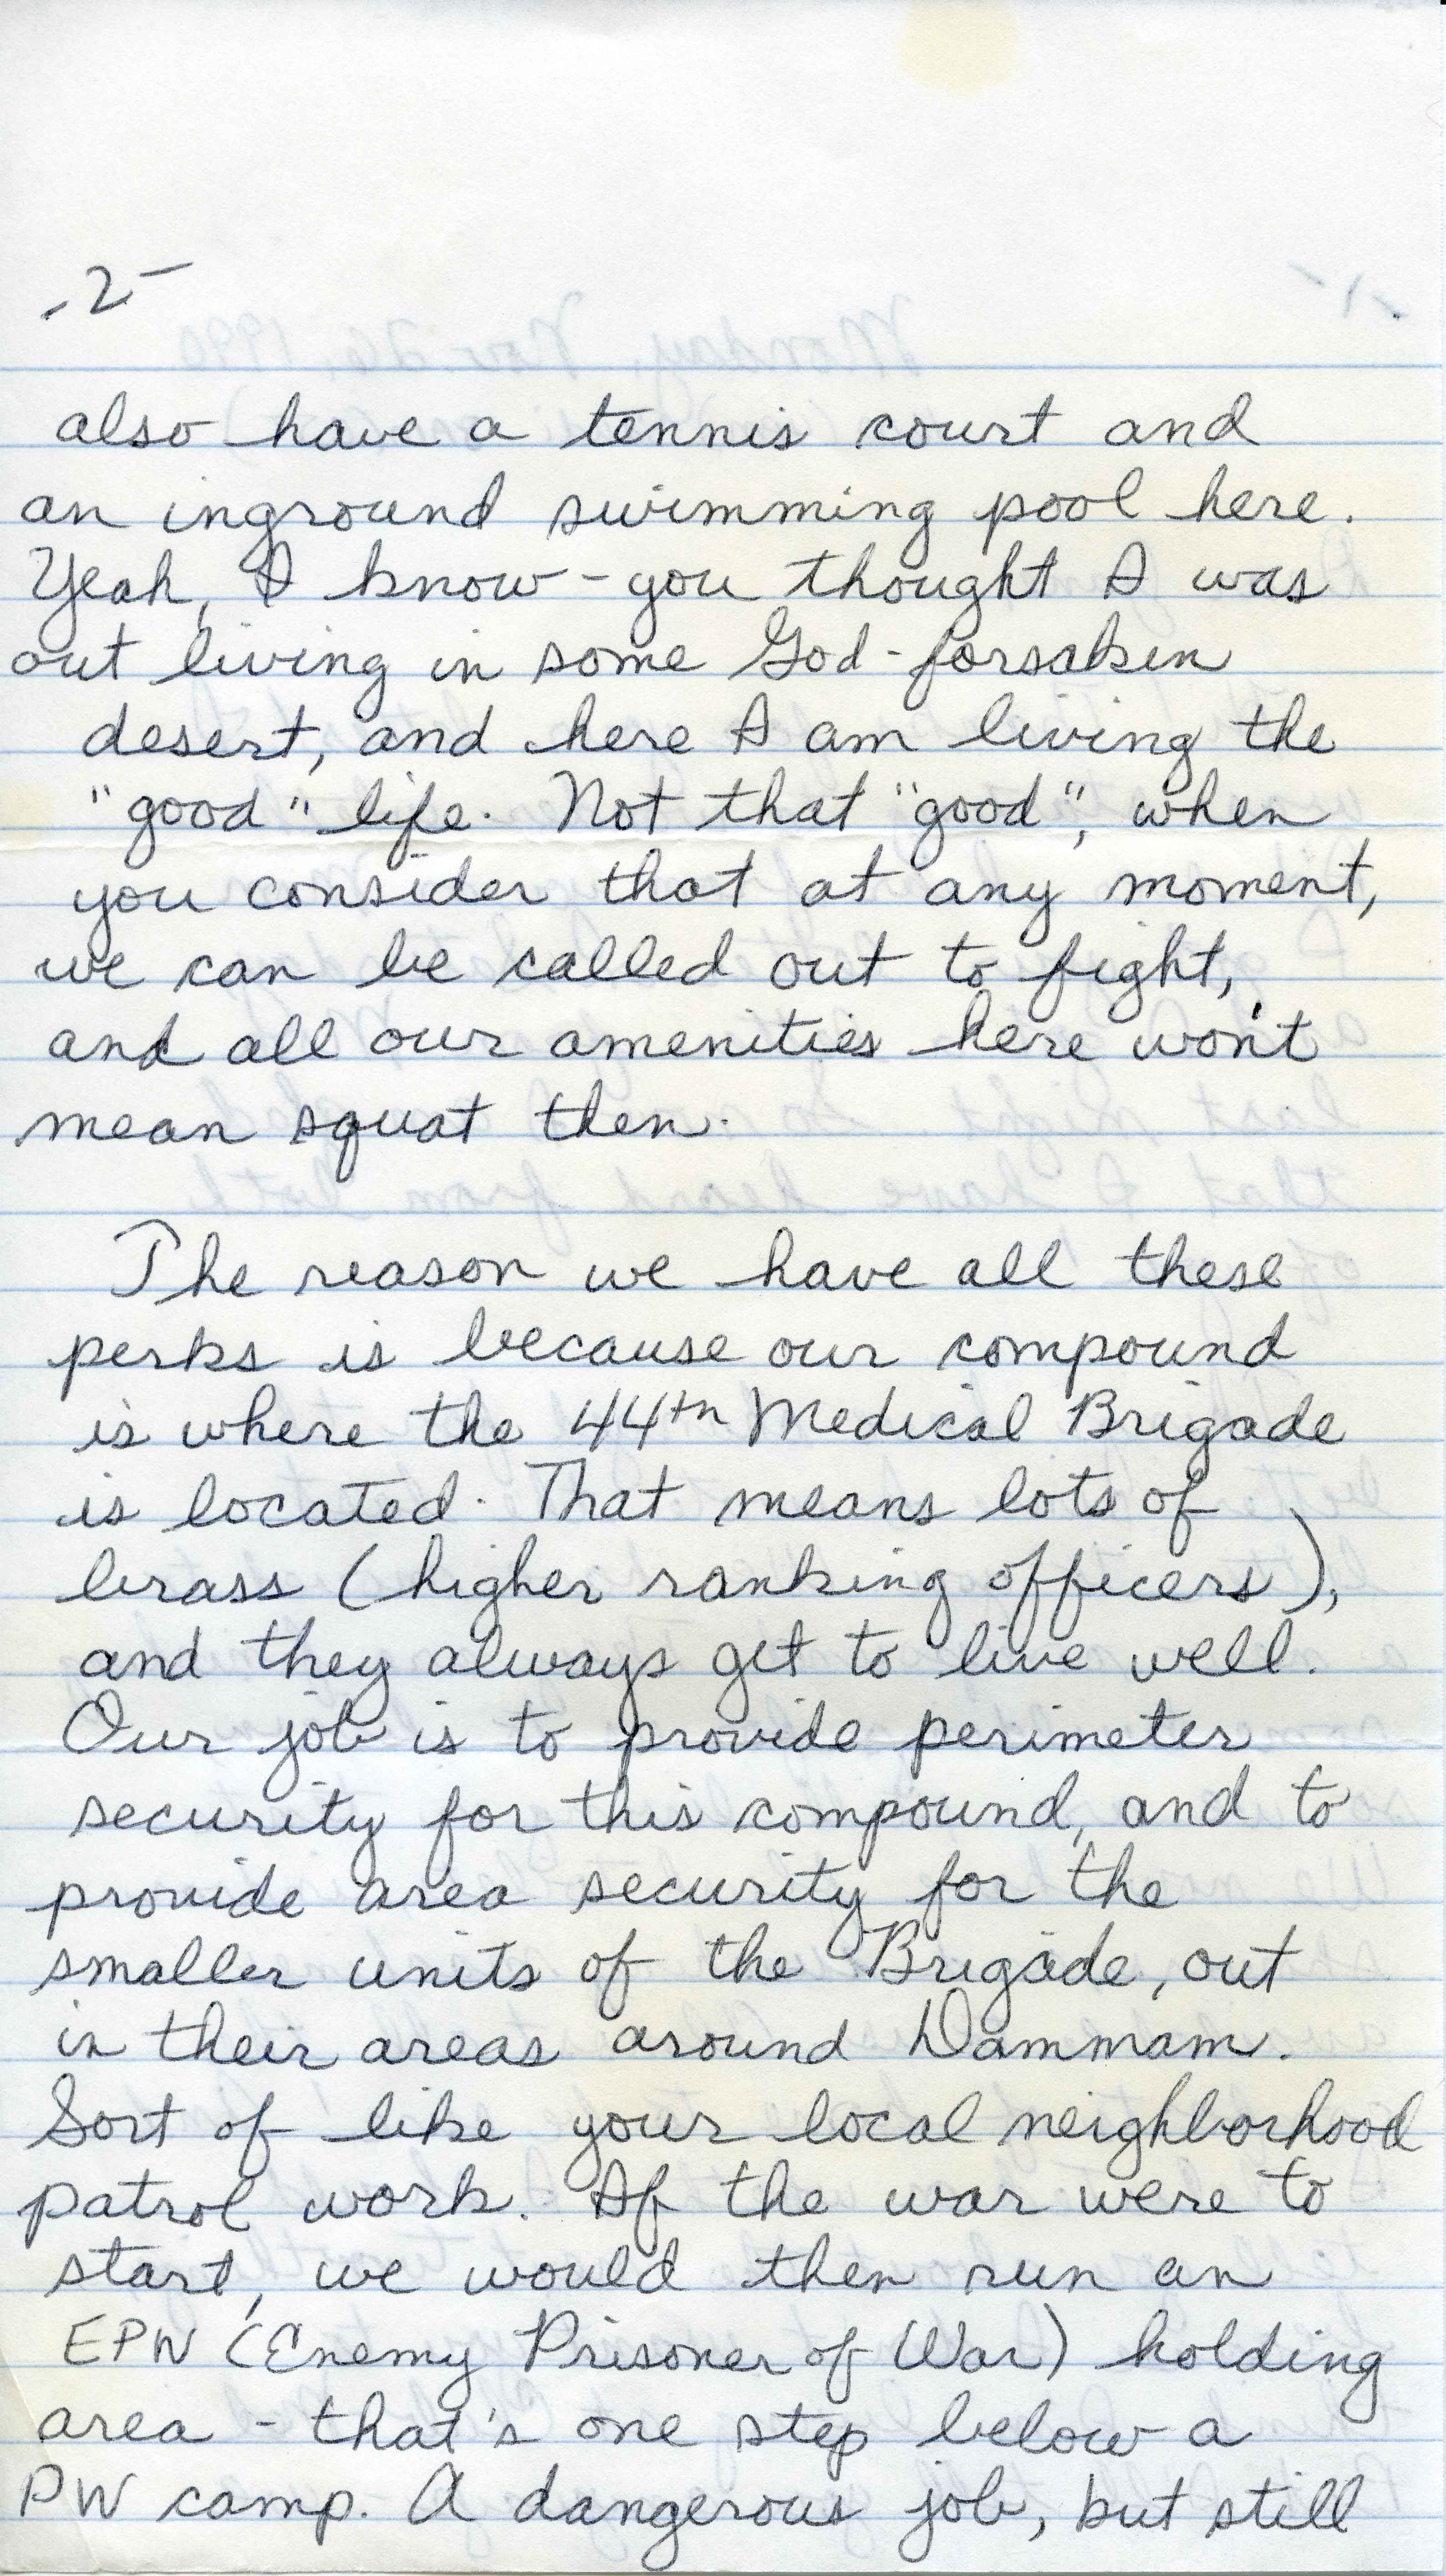 -2-
also have a tennis court and
an inground swimming pool here.
Yeah, I know - you thought I was
out living in some God-forsaken
desert, and here I am living the
"good" life. Not that "good", when
you consider that at any moment,
we can be called out to fight,
and all our amenities here won't
mean squat then.
The reason we have all these
perks is because our compound
is where the 44th Medical Brigade
is located. That means lots of
brass (higher ranking officers),
and they always get to live well.
Our job is to provide perimeter
security for this compound, and to
provide area security for the
smaller units of the Brigade, out
in their areas around Dammam.
Sort of like your local neighborhood
patrol work. If the war were to
start, we would then run an
EPW (Enemy Prisoner of War) holding
area - that's one step below a
PW camp. A dangerous job, but still